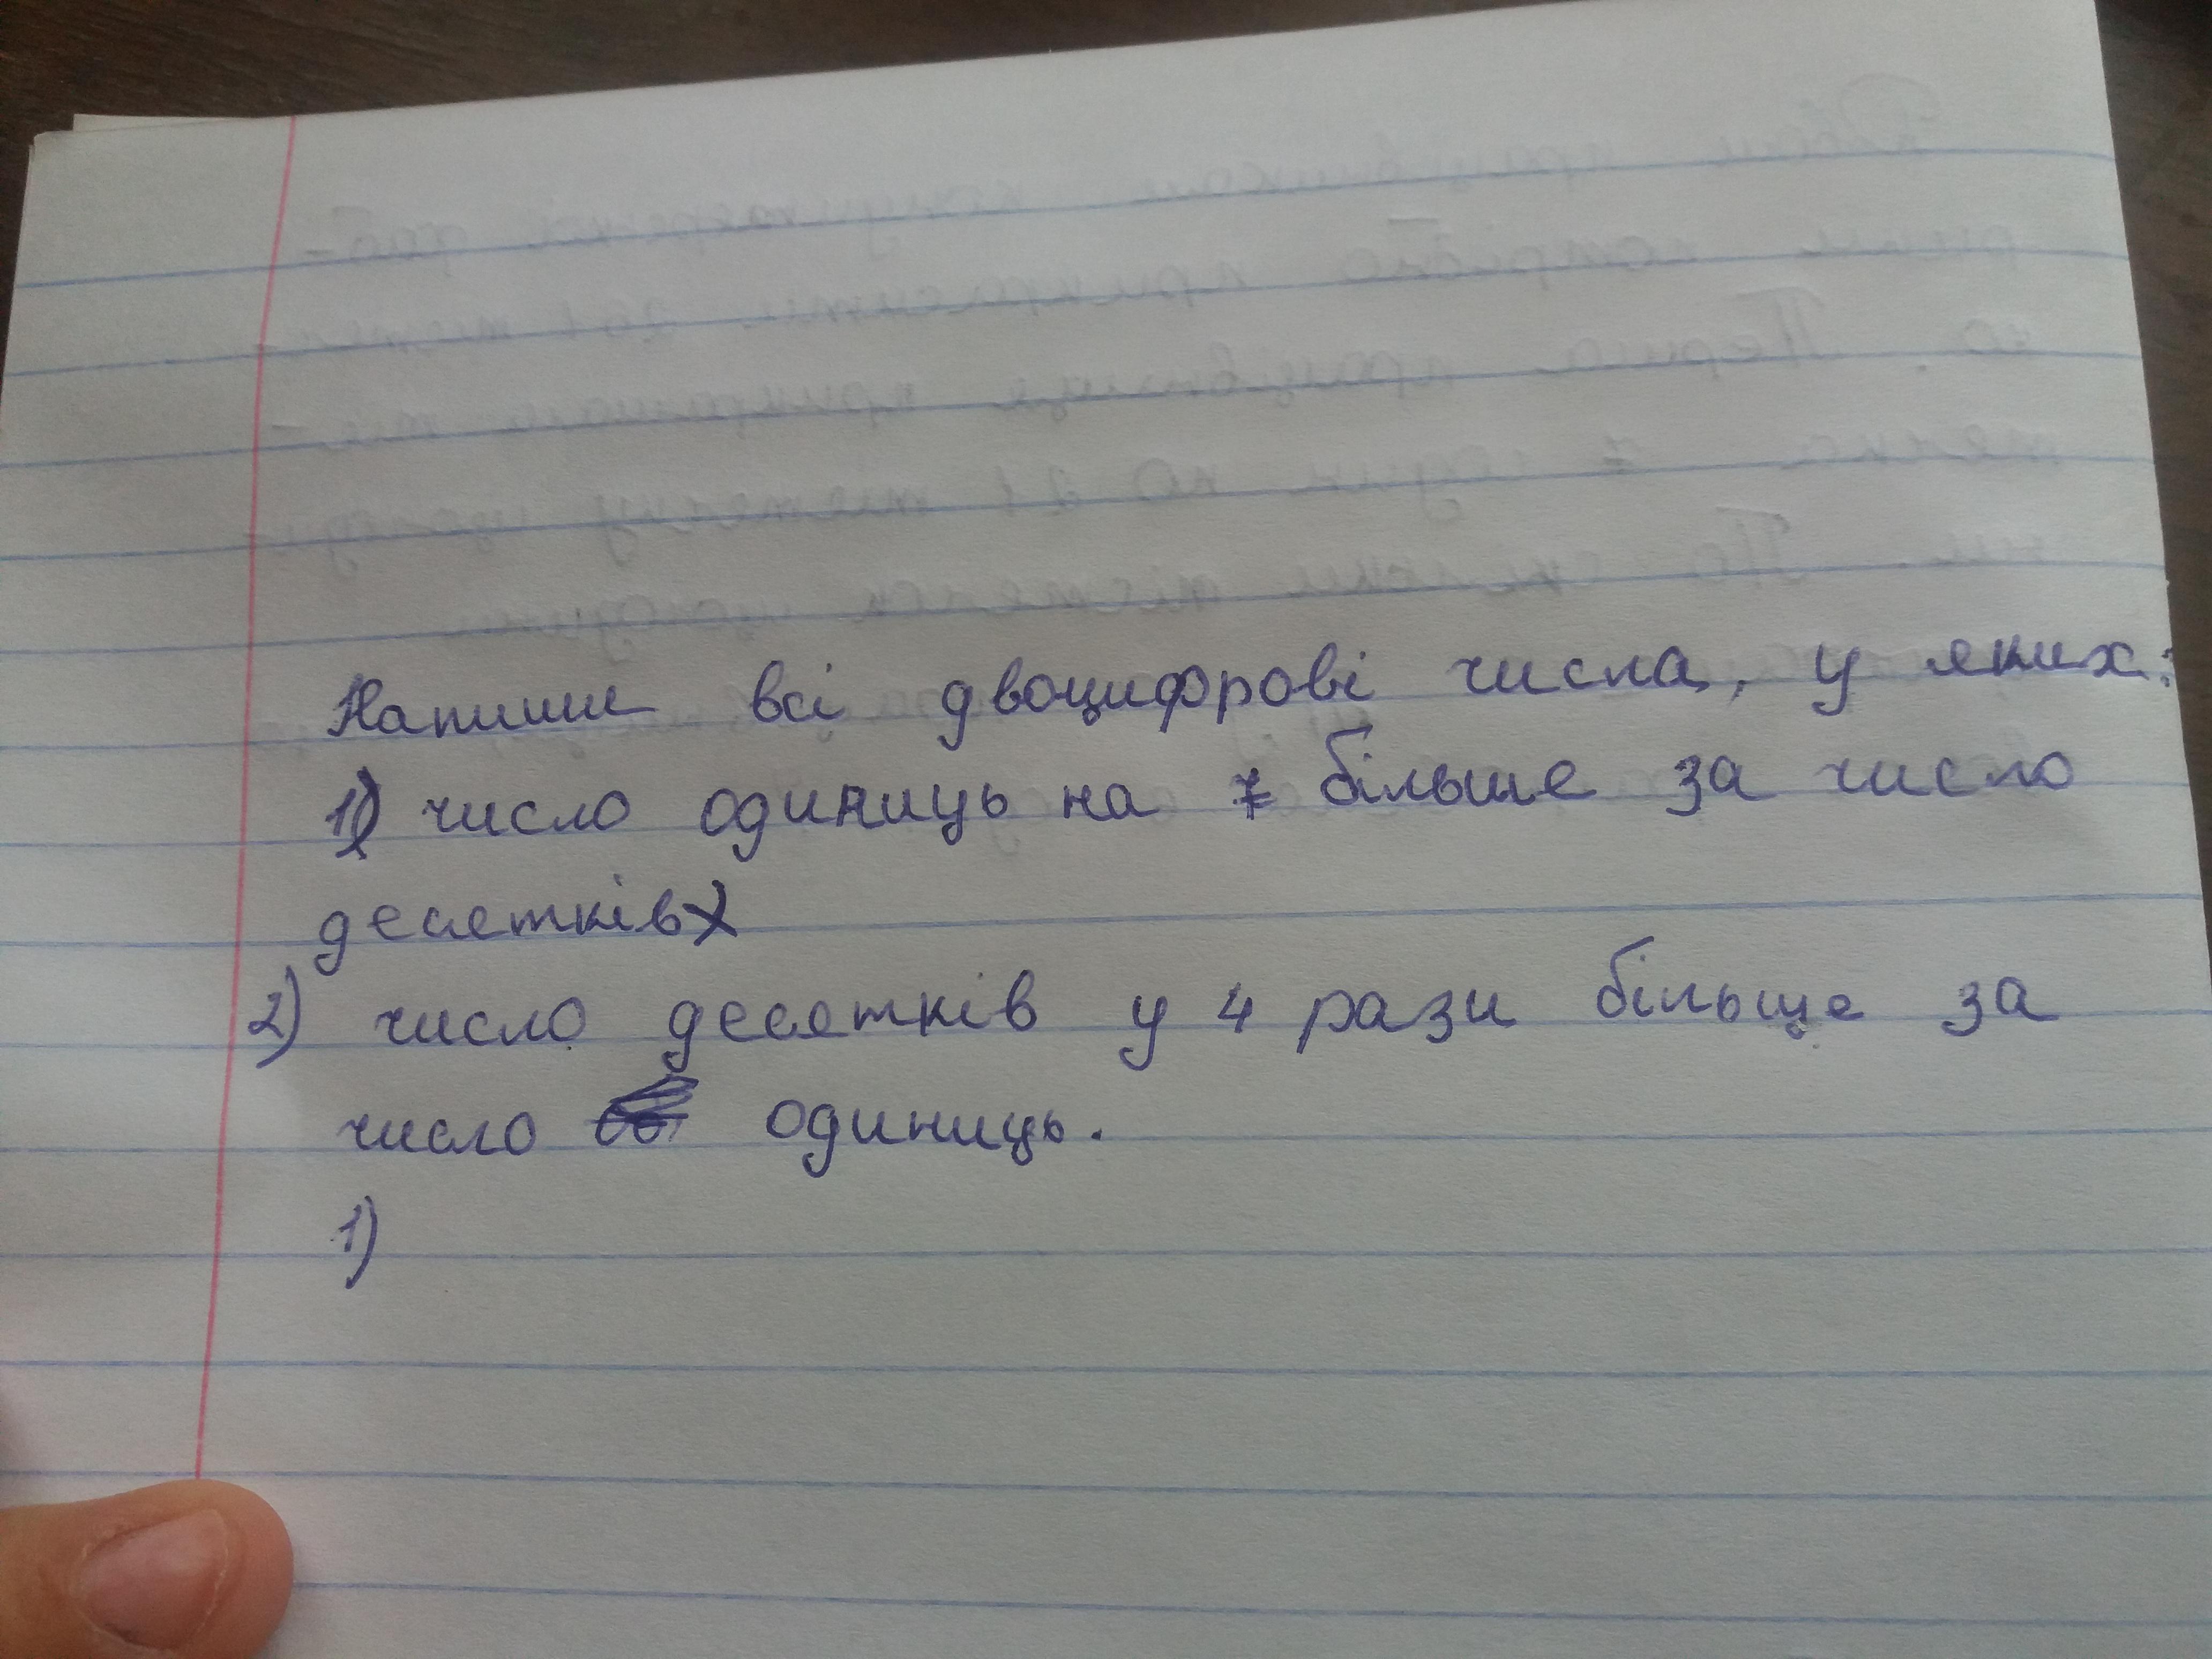 Напиши всі двоцифрові числа, у яких:
1) число одиниць на 7 більше за число
десятків
2) число десятків у 4 рази більще за
число одиниць.
1)